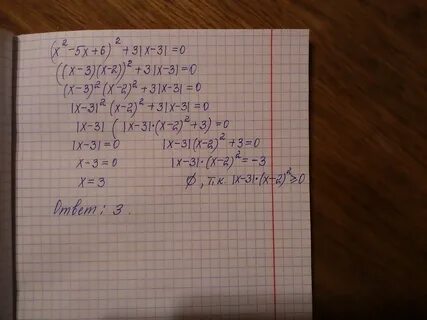 (x² - 5x + 6)² + 3|x-3| = 0
((x-3)(x-2))² + 3|x-3| = 0
(x-3)² (x-2)² + 3|x-3| = 0
|x-3|² (x-2)² + 3|x-3| = 0
|x-3| (|x-3|·(x-2)² + 3) = 0
|x-3| = 0 |x-3|(x-2)² + 3 = 0
x-3 = 0 |x-3|·(x-2)² = -3
x = 3 Ø, т.к |x-3|·(x-2)² ≥ 0
Ответ: 3.